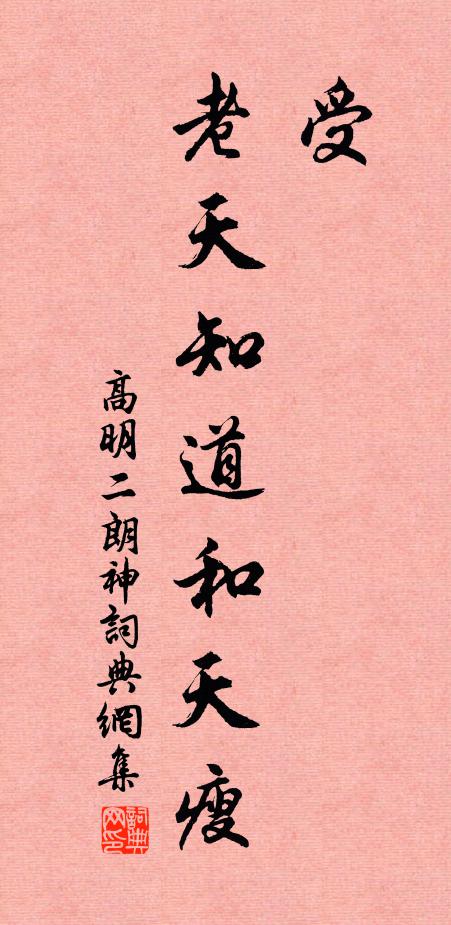 受
老天知道和天瘦
高明二朗神詞典網集
詞典网印